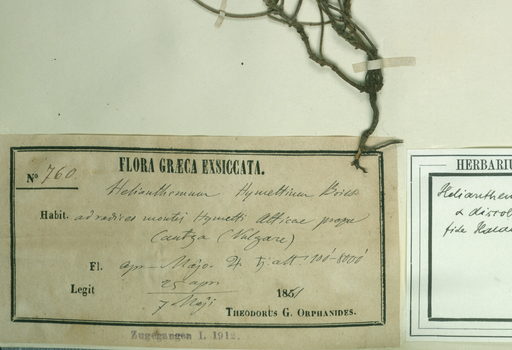 FLORA GRÆCA EXSICCATA.
No 760.
Helianthemum Hymettium Boiss
Habit. ad radices montis Hymetti Atticae prope
(Vulgare)
Fl. apr – Majo. ♃
25 apr
Legit 1851
7 Maji
THEODORUS G. ORPHANIDES.
Zugegangen I. 1912.
HERBARIU
Helianthem
fide